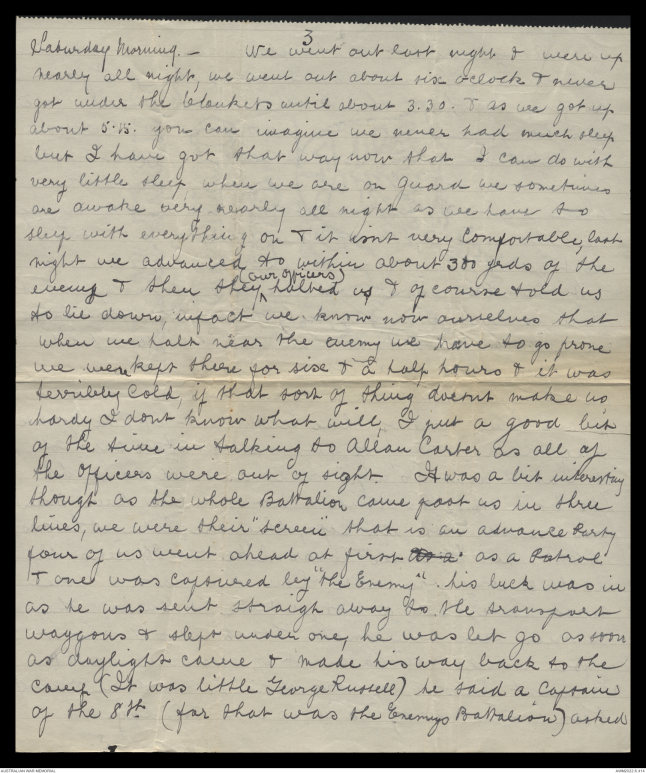 3
Saturday Morning. - We went out last night & were up
nearly all night, we went out about six oclock & never
got under the blankets until about 3.30. & as we got up
about 5.15. you can imagine we never had much sleep
but I have got that way now that I can do with
very little sleep when we are on guard we sometimes
are awake very nearly all night as we have to
sleep with everything on & it isnt very comfortable, last
night we advanced to within about 300 yrds of the
enemy & then they (our officers) halted us & of course told us
to lie down, infact we know now ourselves that
when we halt near the enemy we have to go prone
we were kept there for six & a half hours & it was
terribley cold, if that sort of thing doesnt make us
hardy I dont know what will, I put a good bit
of the time in talking to Allan Carter as all of
the officers were out of sight. It was a bit interesting
though as the whole Battalion came past us in three
lines, we were their "screen" that is an advance Party
four of us went ahead at first as a Patrol
& one was captured by "the Enemy". his luck was in
as he was sent straigh away to the transport
waggons & slept under one, he was let go as soon
as daylight came & made his way back to the
camp (It was little George Russell) he said a Captain
of the 8th. (for that was the Enemys Battalion) asked
AUSTRALIAN WAR MEMORIAL